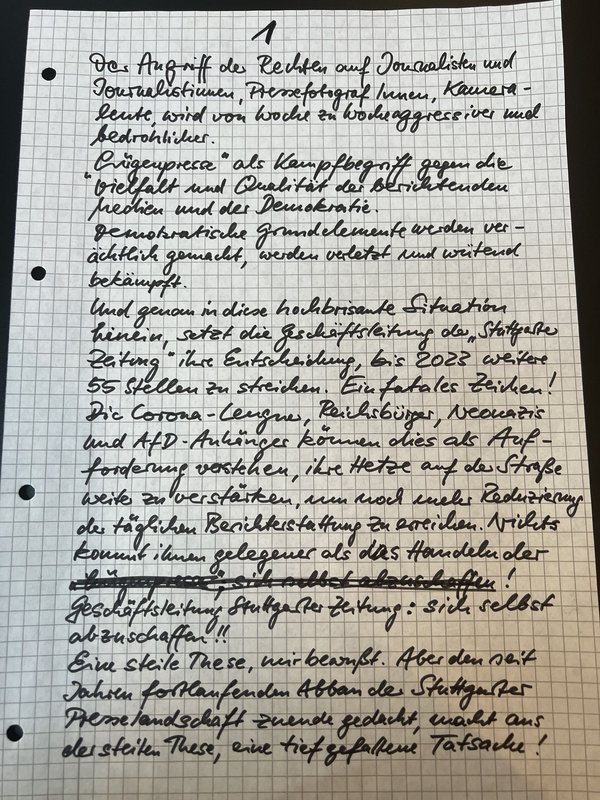 1
Der Angriff der Rechten auf Journalisten und
Journalistinnen, PressefotografInnen, Kamera-
leute, wird von Woche zu Woche aggressiver und
bedrohlicher.
"Lügenpresse" als Kampfbegriff gegen die
Vielfalt und Qualität der berichtenden
Medien und der Demokratie.
Demokratische Grundelemente werden ver-
ächtlich gemacht, werden verletzt und wütend
bekämpft.
Und genau in diese hochbrisante Situation
hinein, setzt die Geschäftsleitung der „Stuttgarter
Zeitung" ihre Entscheidung, bis 2023 weitere
55 Stellen zu streichen. Ein fatales Zeichen!
Die Corona-Leugner, Reichsbürger, Neonazis
und AfD-Anhänger können dies als Auf-
forderung verstehen, ihre Hetze auf der Straße
weiter zu verstärken, um noch mehr Reduzierung
der täglichen Berichterstattung zu erreichen. Nichts
kommt ihnen gelegener als das Handeln der
"Lügenpresse", sich selbst abzuschaffen!
Geschäftsleitung Stuttgarter Zeitung: sich selbst
abzuschaffen!!
Eine steile These, mir bewußt. Aber den seit
Jahren fortlaufenden Abbau der Stuttgarter
Presselandschaft zuende gedacht, macht aus
der steilen These, eine tief gefallene Tatsache!